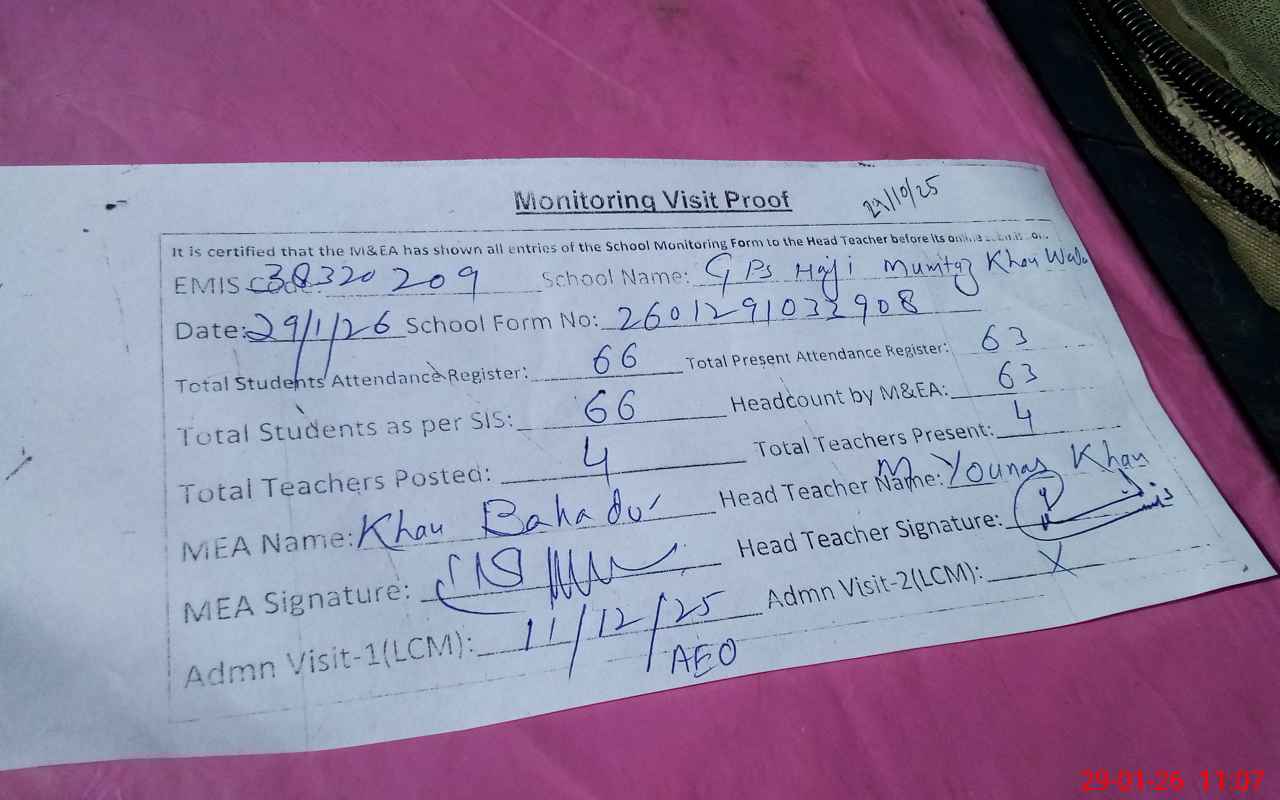 Monitoring Visit Proof
29/10/25
It is certified that the M&EA has shown all entries of the School Monitoring Form to the Head Teacher before its
EMIS Code: 38320209 School Name: GPS Haji Mumtaz Khan Wala
Date: 29/1/26 School Form No: 2601291032908
Total Students Attendance Register: 66 Total Present Attendance Register: 63
Total Students as per SIS: 66 Headcount by M&EA: 63
Total Teachers Posted: 4 Total Teachers Present: 4
MEA Name: Khan Bahadur Head Teacher Name: M. Younas Khan
MEA Signature: Head Teacher Signature:
Admn Visit-1(LCM): 11/12/25 Admn Visit-2(LCM): X
AEO
29-01-26 11:07